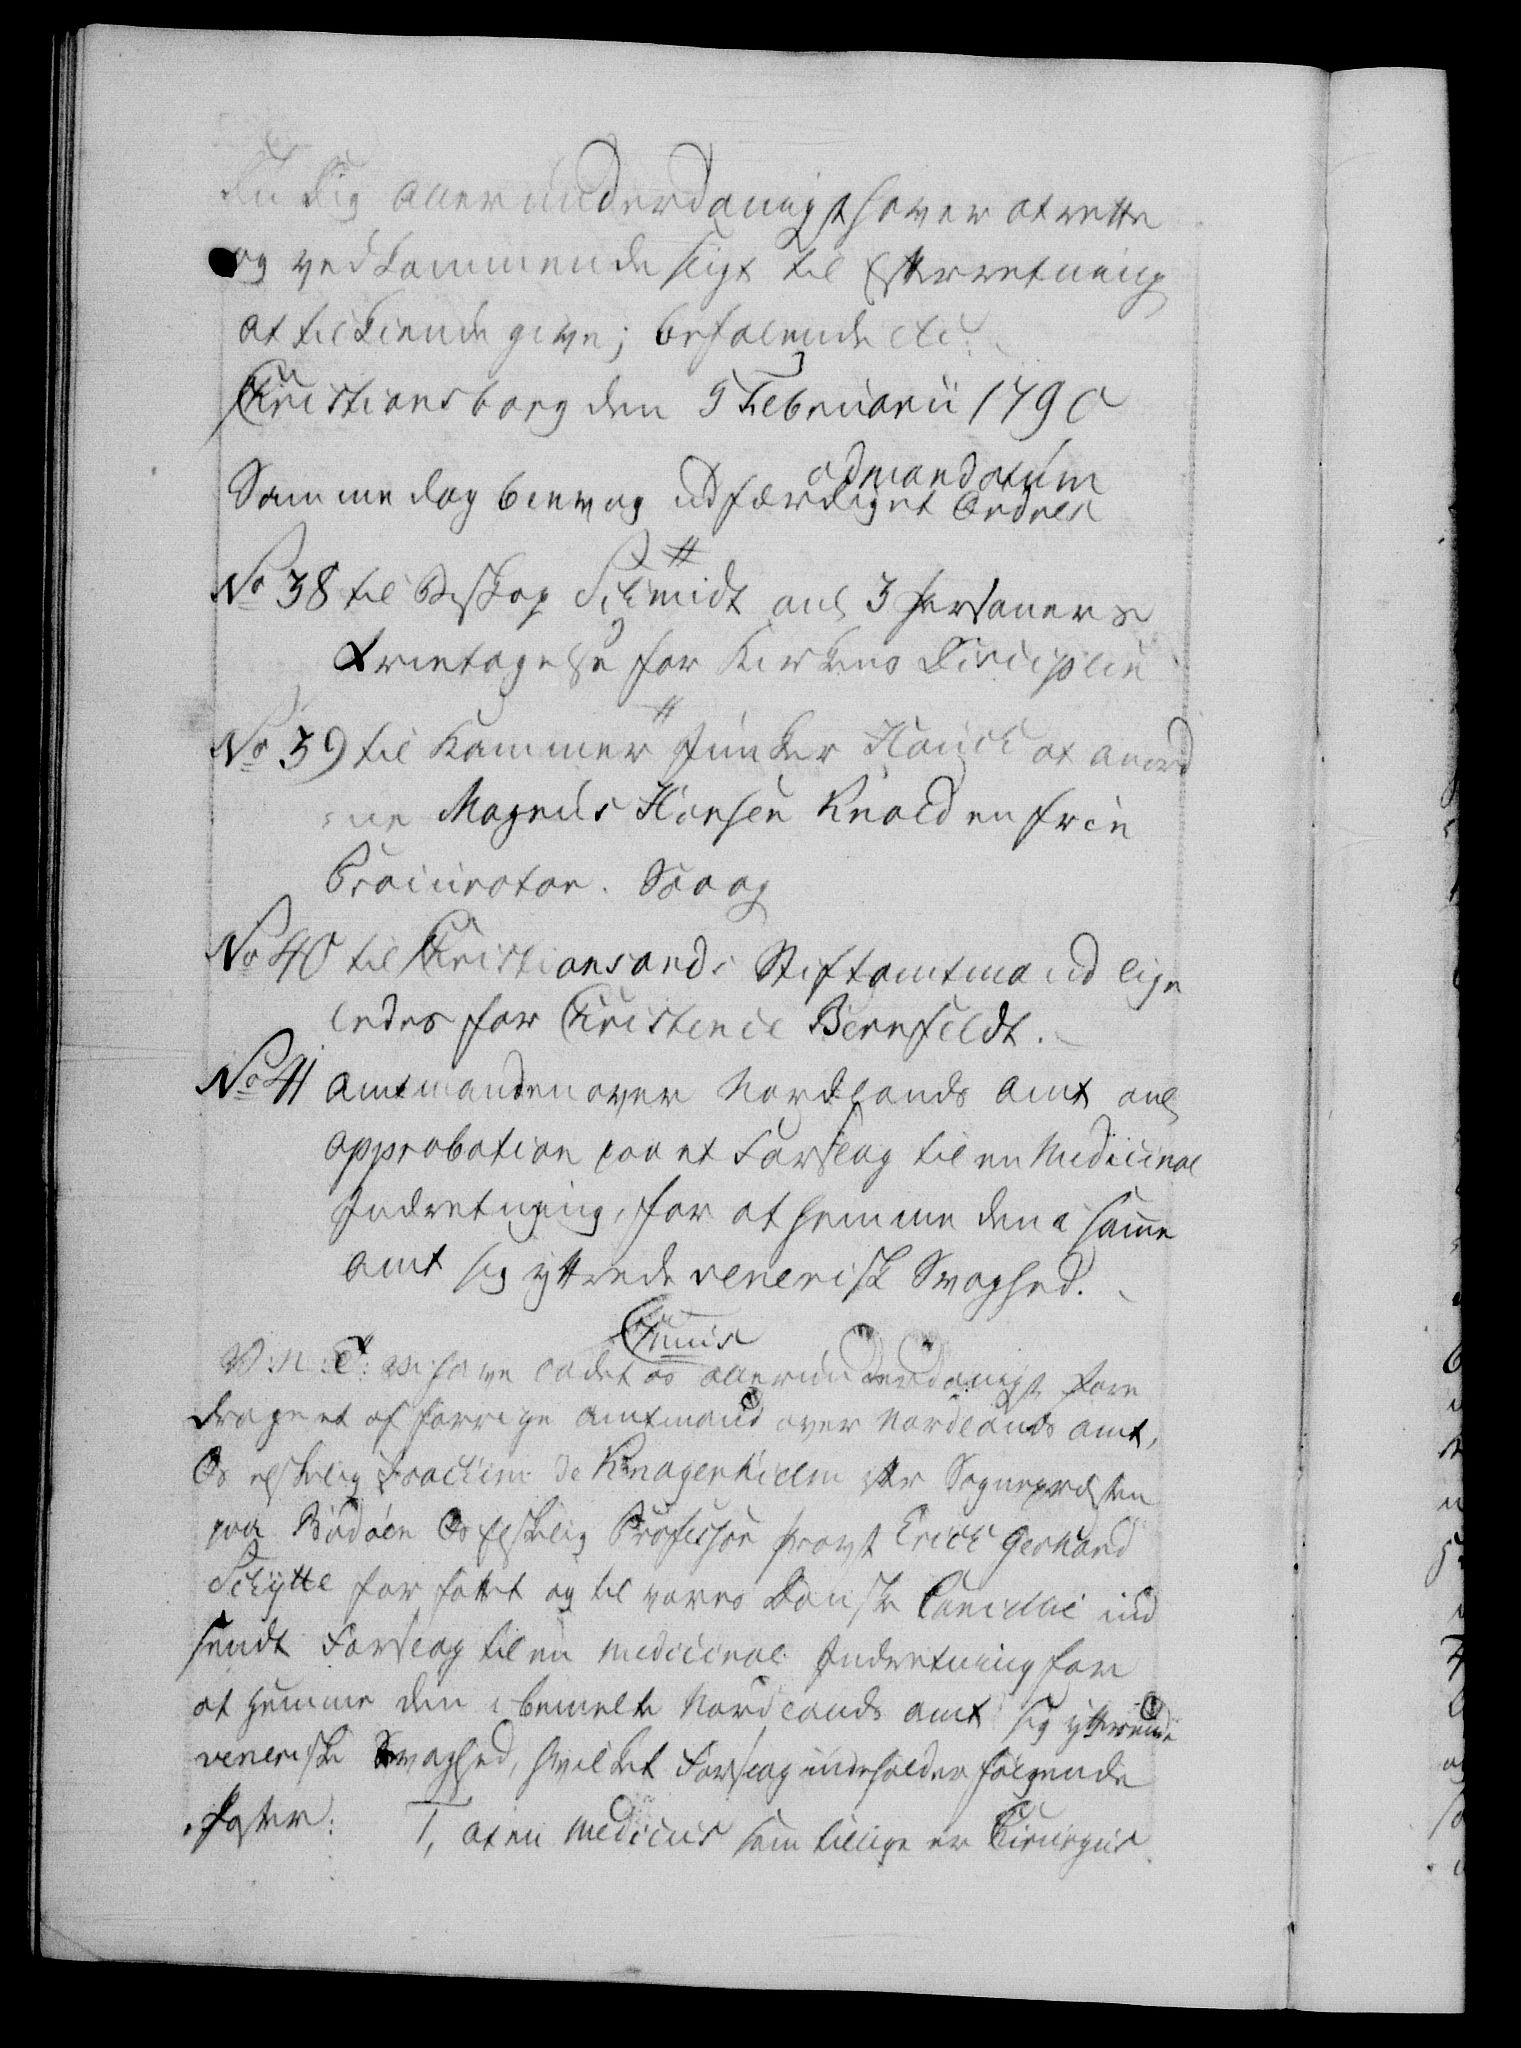 Du Dig allerunderdanigst haver at rette
og vedkommende sligt til Efterretning
at tilkiende give; befalende etc:
Christiansborg den 5 Februarii 1790
ad mandatum
Samme dag blev og udfærdiget Ordres
No 38 til Biskop Schmidt anl 3 Personers
Fritagelse for Kirkens Disciplin
No 39 til Kammer Junker Hauch at anord
=ne Magnus Hansen Knold en frie
Procurator. Saa og
No 40 til Christiansands Stiftamtmand lige
ledes for Christence Bernfeldt.
No 41 Amtmanden over Nordlands Amt anl
approbation paa et Forslag til en Medicinal
Indretning, for at hemme den i samme
Amt sig yttrede venerisk Svaghed.
V: n: T: Vi have ladet os allerunderdanigst fore
draget af forrige Amtmand over Nordlands Amt,
Os elskelig Joachim de Knagenhielm ettr Sognepræsten
paa Bodøen Os elskelig Professor Provst Erich Gerhard
Schytte forfattet og til vores Danske Cancellie ind
sendt Forslag til en medicinal Indretning for
at hemme den i bemelte Nordlands Amt sig yttrende
veneriske Svaghed, hvilket Forslag indeholder følgende
Poster: 1, at en Medicus som tillige er Chirurgus